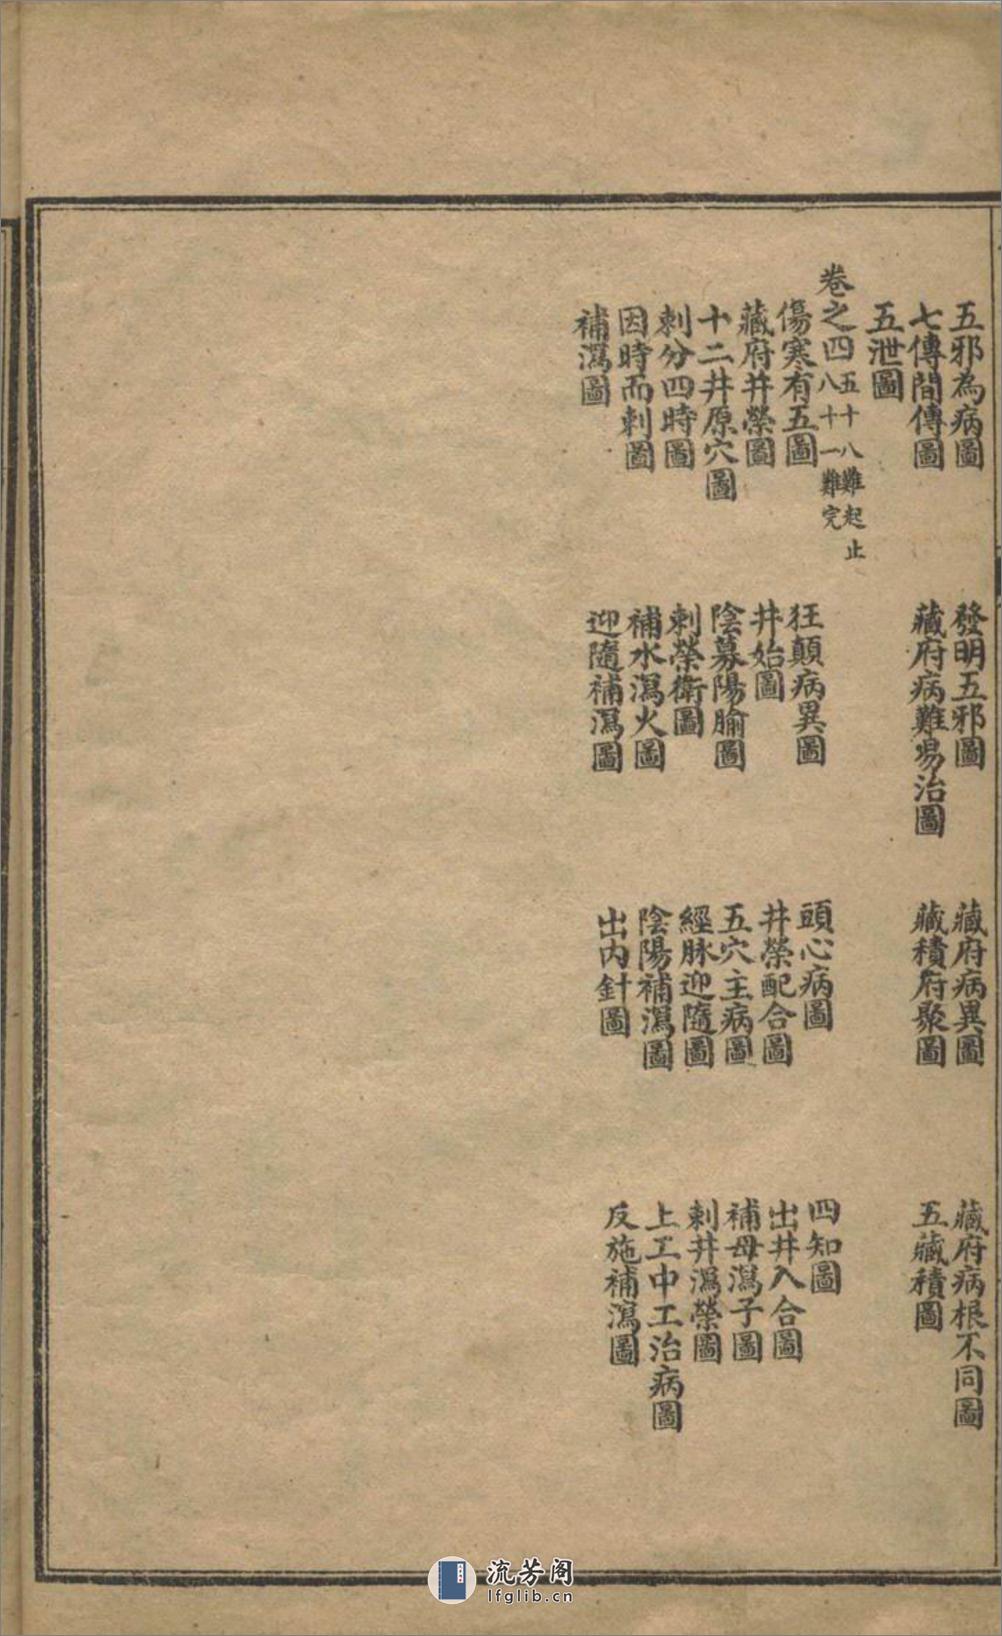 五邪為病圖　發明五邪圖　藏府病異圖　藏府病根不同圖
七傳間傳圖　藏府病難易治圖　藏積府聚圖　五藏積圖
五泄圖
卷之四　五十八難起止八十一難完
傷寒有五圖　狂顛病異圖　頭心病圖　四知圖
藏府井榮圖　井始圖　井榮配合圖　出井入合圖
十二井原穴圖　陰募陽腧圖　五穴主病圖　補母瀉子圖
刺分四時圖　刺榮衛圖　經脉迎隨圖　刺井瀉榮圖
因時而刺圖　補水瀉火圖　陰陽補瀉圖　上工中工治病圖
補瀉圖　迎隨補瀉圖　出內針圖　反施補瀉圖
流芳阁
lfglib.cn